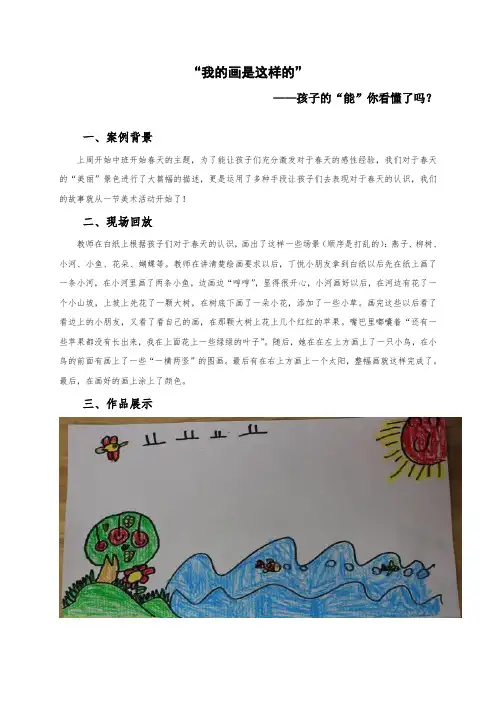 “我的画是这样的”
——孩子的“能”你看懂了吗？
一、案例背景
上周开始中班开始春天的主题，为了能让孩子们充分激发对于春天的感性经验，我们对于春天
的“美丽”景色进行了大篇幅的描述，更是运用了多种手段让孩子们去表现对于春天的认识，我们
的故事就从一节美术活动开始了！
二、现场回放
教师在白纸上根据孩子们对于春天的认识，画出了这样一些场景（顺序是打乱的）：燕子、柳树、
小河、小鱼、花朵、蝴蝶等。教师在讲清楚绘画要求以后，丁悦小朋友拿到白纸以后先在纸上画了
一条小河，在小河里画了两条小鱼，边画边“哼哼”，显得很开心，小河画好以后，在河边有花了一
个小山坡，上坡上先花了一颗大树，在树底下画了一朵小花，添加了一些小草。画完这些以后看了
看边上的小朋友，又看了看自己的画，在那颗大树上花上几个红红的苹果。嘴巴里嘟囔着“还有一
些苹果都没有长出来，我在上面花上一些绿绿的叶子”。随后，她在在左上方画上了一只小鸟，在小
鸟的前面有画上了一些“一横两竖”的图画。最后有在右上方画上一个太阳，整幅画就这样完成了。
最后，在画好的画上涂上了颜色。
三、作品展示